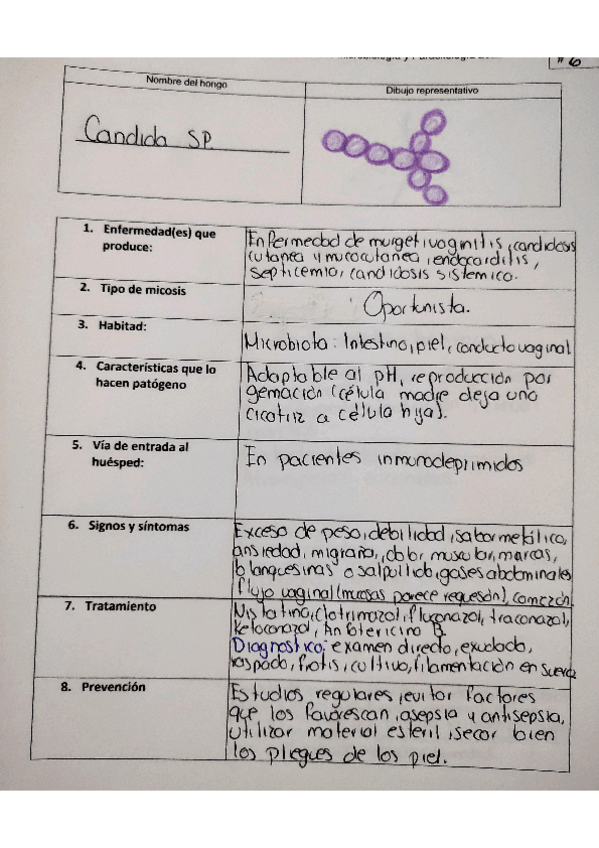 #6
Nombre del hongo
Dibujo representativo
Candida SP.
1. Enfermedad(es) que produce:
Enfermedad de murget, vaginitis, candidosis
cutanea y mucocutanea, endocarditis,
septicemia, candidosis sistemica.
2. Tipo de micosis
Oportunista.
3. Habitad:
Microbiota: Intestino, piel, conducto vaginal
4. Características que lo hacen patógeno
Adaptable al pH, reproducción por
gemación (célula madre deja una
cicatriz a célula hija).
5. Vía de entrada al huésped:
En pacientes inmunodeprimidos
6. Signos y síntomas
Exceso de peso, debilidad, sabor metálico,
ansiedad, migraña, dolor muscular, marcas,
blanquesinas o salpullido, gases abdominales
flujo vaginal (mucosas parece requesón), comezón
7. Tratamiento
Nistatina, clotrimazol, fluconazol, traconazol,
ketoconazol, Anfotericina B.
Diagnostico: examen directo, exudado,
raspado, frotis, cultivo, filamentación en suero
8. Prevención
Estudios regulares, evitar factores
que los favorescan, asepsia y antisepsia,
utilizar material esteril, secar bien
los pliegues de los piel.